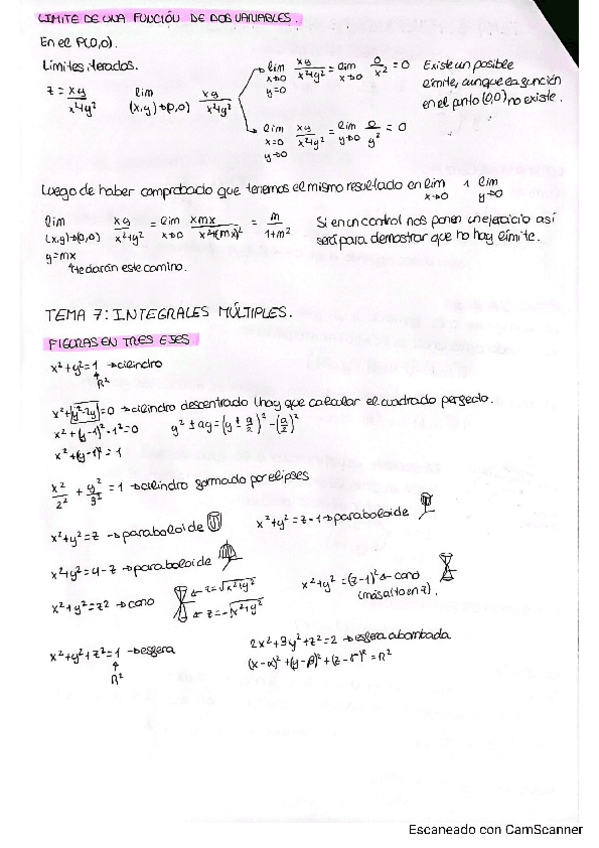 LIMITE DE UNA FUNCIÓN DE DOS VARIABLES.
En el P(0,0).
Límites iterados.
z = xy/x²+y² lim (x,y)→(0,0) xy/x²+y²
lim x→0 y=0 xy/x²+y² = lim x→0 0/x² = 0
Existe un posible
límite, aunque la función
en el punto (0,0) no existe.
lim x=0 y→0 xy/x²+y² = lim y→0 0/y² = 0
Luego de haber comprobado que tenemos el mismo resultado en lim x→0 y lim y→0
lim (x,y)→(0,0) y=mx xy/x²+y² = lim x→0 xmx/x²+(mx)² = m/1+m²
Si en un control nos ponen un ejercicio así
será para demostrar que no hay límite.
te darán este camino.
TEMA 7: INTEGRALES MÚLTIPLES.
FIGURAS EN TRES EJES
x²+y²=1 →cilindro
R²
x²+y²-2y=0 →cilindro descentrado (hay que calcular el cuadrado perfecto.
x²+(y-1)²-1²=0 y² ± ay = (y ± a/2)² - (a/2)²
x²+(y-1)² = 1
x²/2² + y²/3² = 1 →cilindro formado por elipses
x²+y²=z →paraboloide
x²+y²=z-1→paraboloide
x²+y²=4-z →paraboloide
x²+y²=z² →cono
z=√x²+y²
z=-√x²+y²
x²+y²=(z-1)² cono
(más alto en z).
x²+y²+z²=1 →esfera
R²
2x²+3y²+z²=2 →esfera abombada
(x-α)²+(y-β)²+(z-γ)²=R²
Escaneado con CamScanner